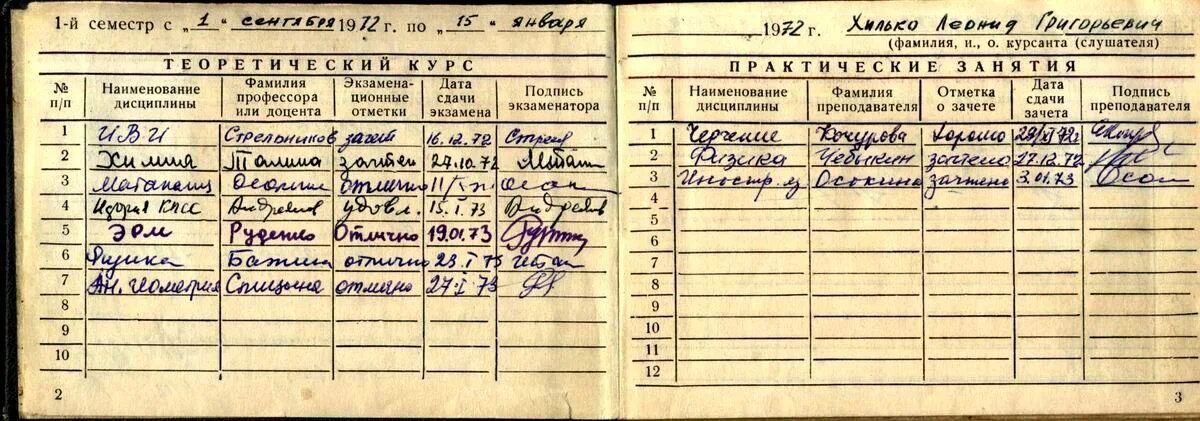 1-й семестр с „1" сентября 1972 г. по „15" января
ТЕОРЕТИЧЕСКИЙ КУРС
№ п/п Наименование дисциплины Фамилия профессора или доцента Экзаменационные отметки Дата сдачи экзамена Подпись экзаменатора
1 ИВИ Стрельников зачет 16.12.72
2 Химия зачтен 27.10.72
3 отлично
4 КПСС Андреяв удовл. 15.I.73
5 Руденко Отлично 19.01.73
6 Физика отлично 23.I 73
7 Ан. геометрия Спицына отлично 27.I 73
8
9
10
2
1972 г. Хилько Леонид Григорьевич
(фамилия, и., о. курсанта (слушателя)
ПРАКТИЧЕСКИЕ ЗАНЯТИЯ
№ п/п Наименование дисциплины Фамилия преподавателя Отметка о зачете Дата сдачи зачета Подпись преподавателя
1 Черчение Кокурова хорошо
2 Физика Чебыкин зачтено 27.12.72
3 Иностр. яз Осокина зачтено 3.01.73
4
5
6
7
8
9
10
11
12
3